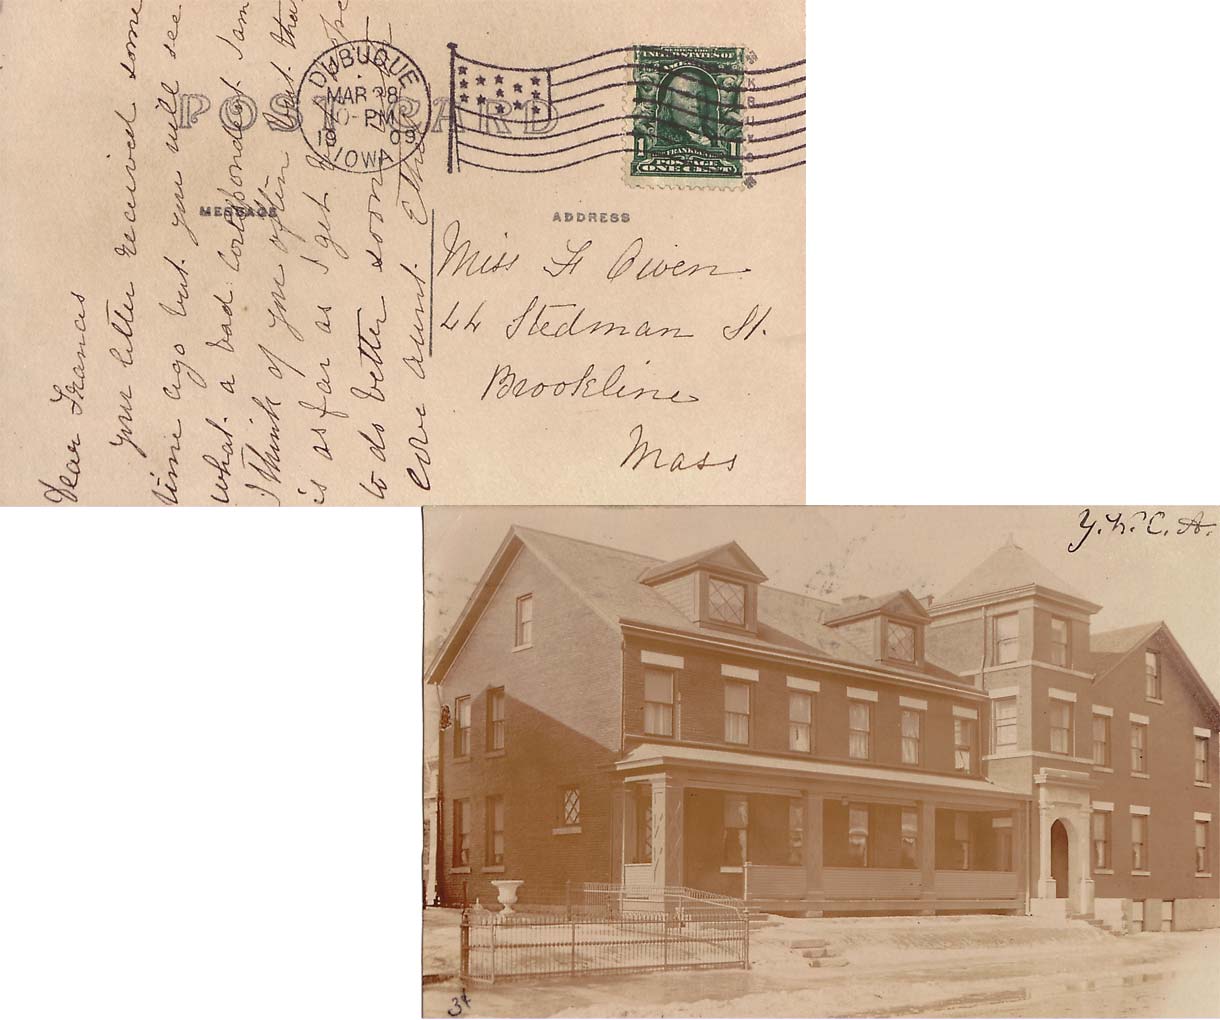 POST CARD
DUBUQUE
MAR 28
-PM
1909
IOWA
SERIES 1902
UNITED STATES OF
AMERICA
1 FRANKLIN 1
POSTAGE
ONE CENT
MESSAGE
ADDRESS
Dear Francis
your letter received some
time ago but you will see
what a bad correspondent I am
I think of you often but that
is as far as I get
to do better soon
love aunt
Miss F Owen
44 Stedman St.
Brookline
Mass
Y.W.C.A.